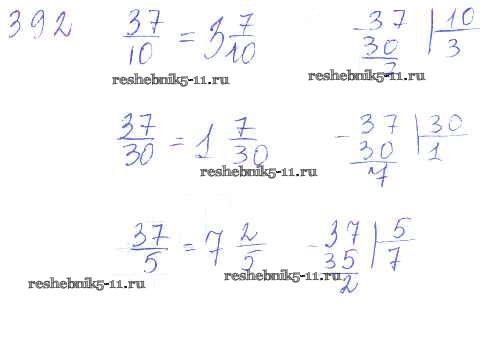 392 37/10 = 3 7/10 - 37 | 10
30 3
7
reshebnik5-11.ru reshebnik5-11.ru
37/30 = 1 7/30 - 37 | 30
30 1
7
reshebnik5-11.ru
37/5 = 7 2/5 - 37 | 5
35 7
2
reshebnik5-11.ru reshebnik5-11.ru